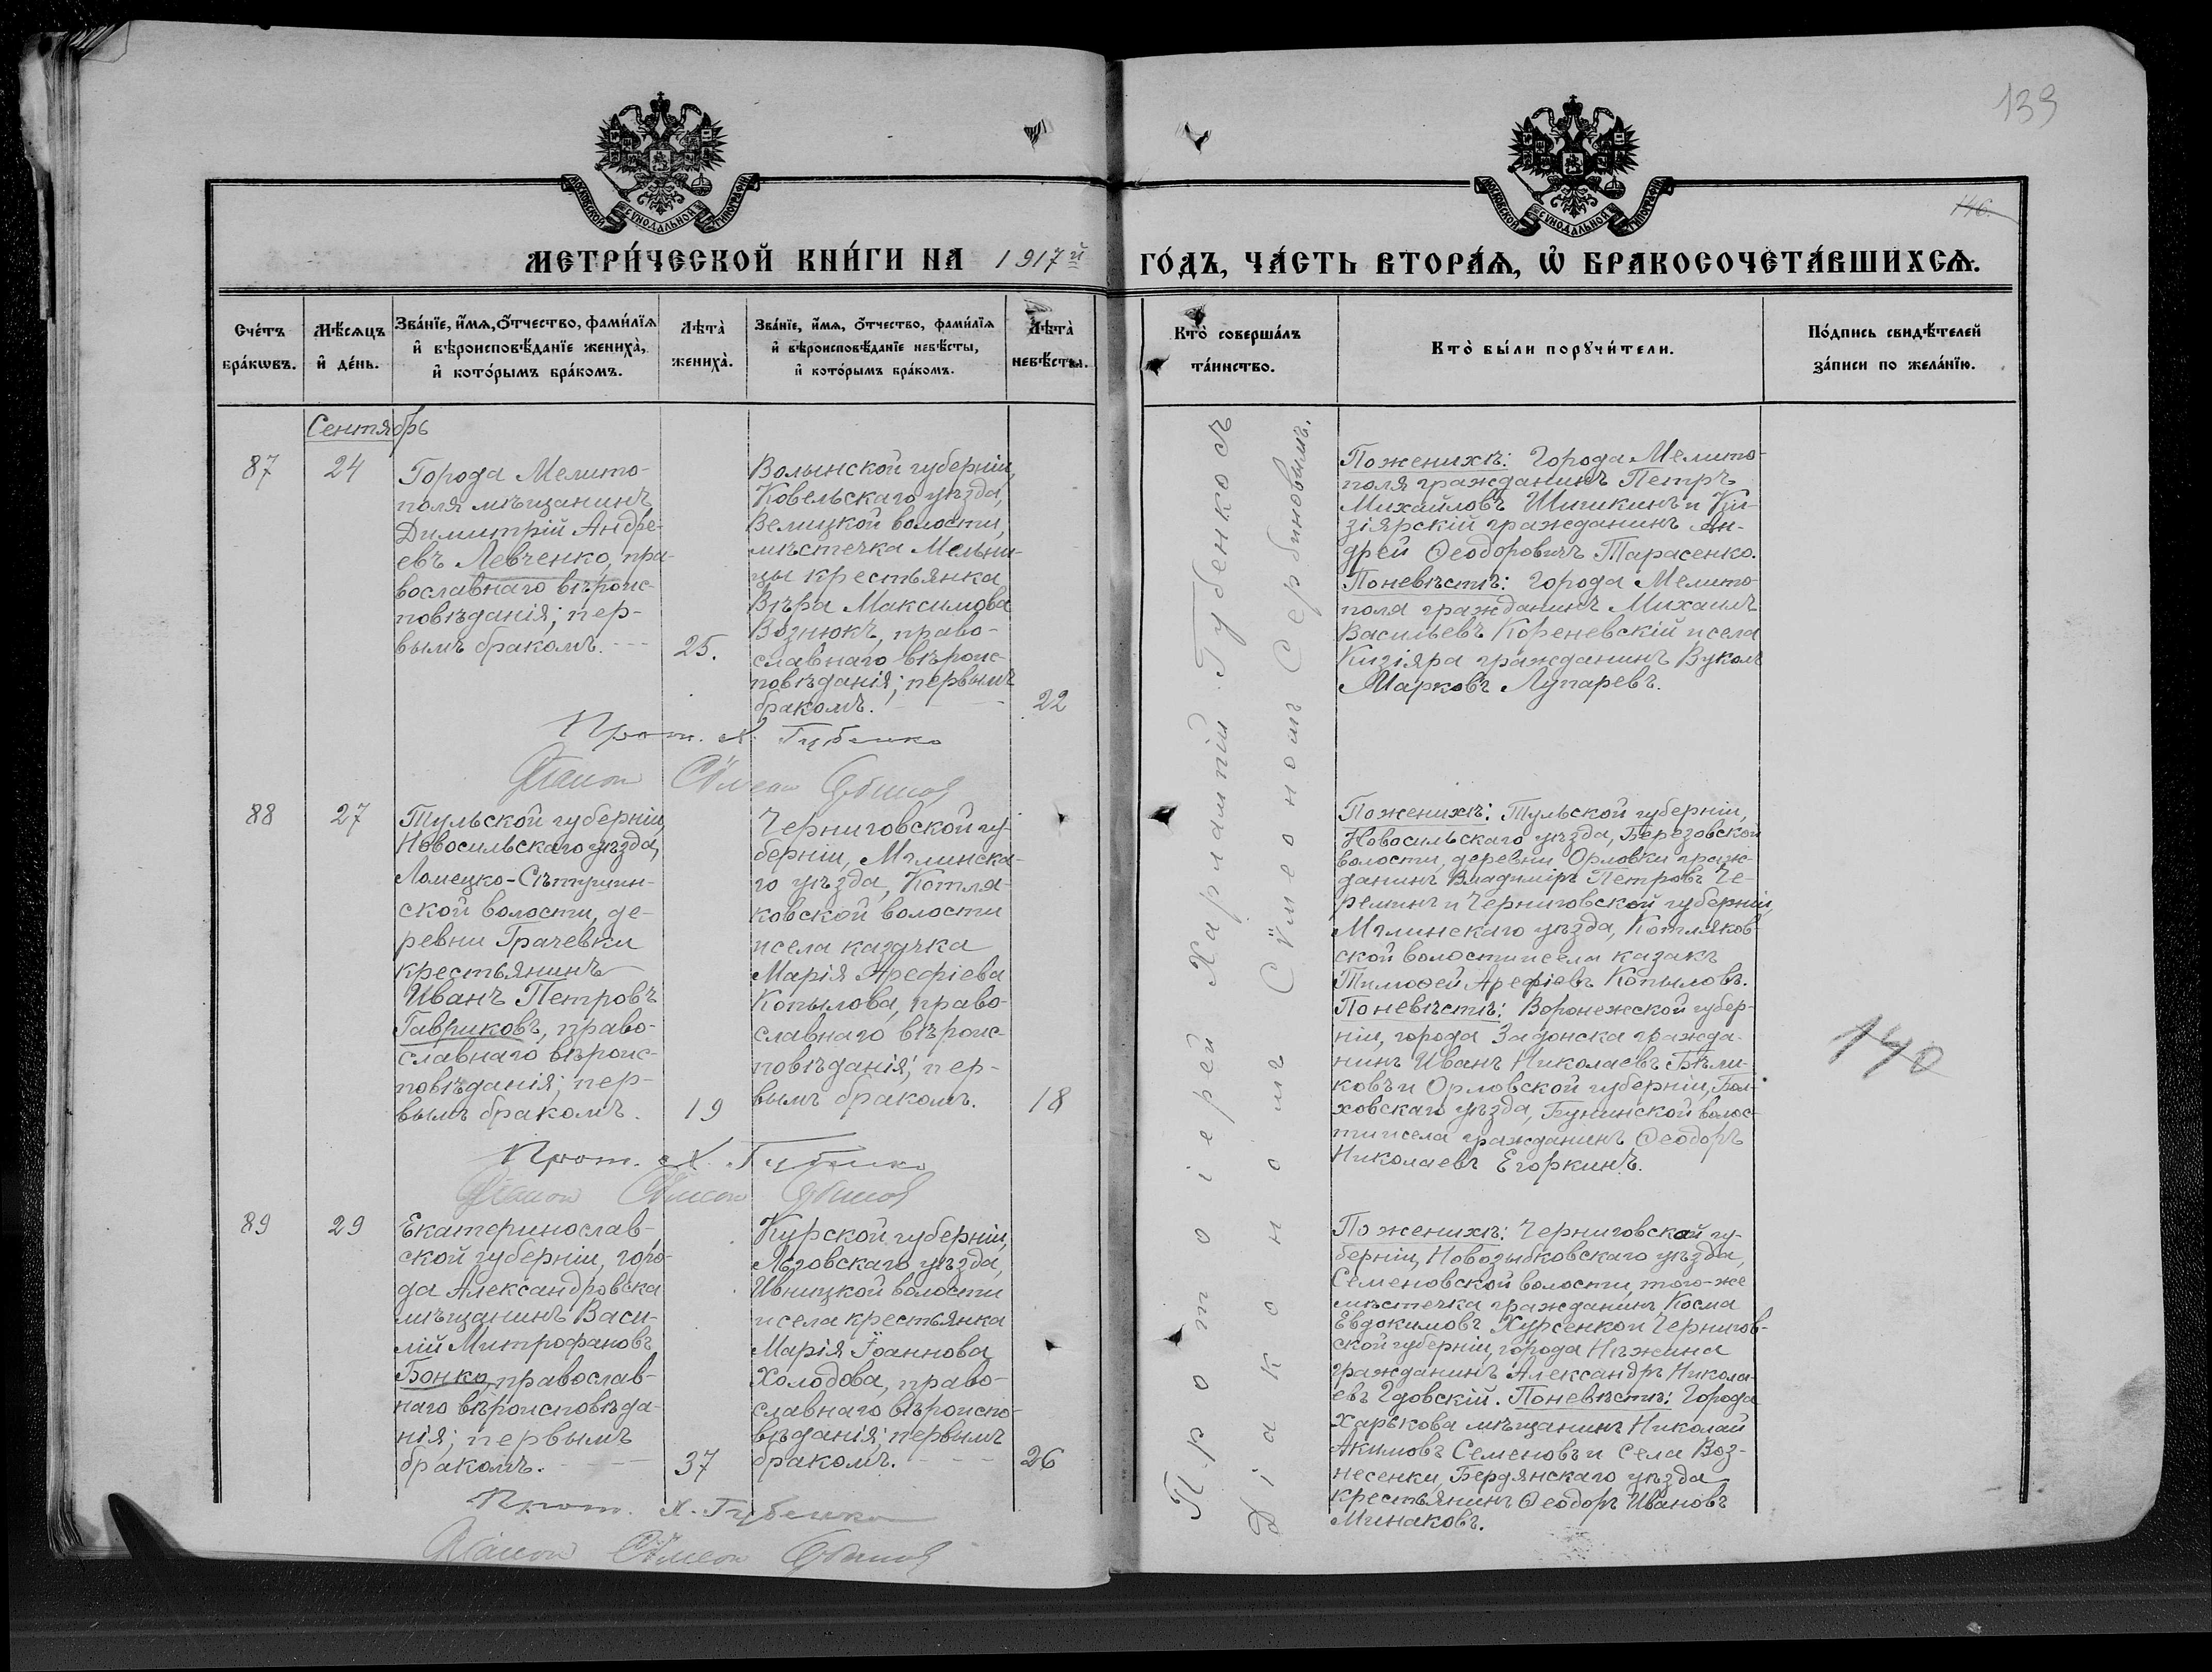 139
146.
МОСКОВСКОЙ СѴНОДАЛЬНОЙ ТИПОГРАФІИ
МОСКОВСКОЙ СѴНОДАЛЬНОЙ ТИПОГРАФІИ
МЕТРИ́ЧЕСКОЙ КНИ́ГИ НА 1917й ГО́ДЪ, ЧА́СТЬ ВТОРА́Ѧ, Ѡ҆ БРАКОСОЧЕТА́ВШИХСѦ.
Сче́тъ бра́кѡвъ.
Мѣ́сяцъ и҆ де́нь.
Зва́нїе, и҆́мѧ, о҆́тчество, фами́лїѧ
и҆ вѣроисповѣ́данїе жениха̀,
и҆ кото́рымъ бра́комъ.
Лѣта̀ жениха̀.
Зва́нїе, и҆́мѧ, о҆́тчество, фами́лїѧ
и҆ вѣроисповѣ́данїе невѣ́сты,
и҆ кото́рымъ бра́комъ.
Лѣта̀ невѣ́сты.
Кто̀ соверша́лъ та́инство.
Кто̀ бы́ли порꙋчи́тели.
По́дпись свидѣ́телей
за́писи по жела́нїю.
Сентябрь
87
24
Города Мелито-
поля мѣщанинъ
Димитрій Андре-
евъ Левченко, пра-
вославнаго вѣроис-
повѣданія; пер-
вымъ бракомъ.
25.
Волынской губерніи,
Ковельскаго уѣзда,
Велицкой волости,
мѣстечка Мельни-
цы крестьянка
Вѣра Максимова
Вознюкъ, право-
славнаго вѣроис-
повѣданія; первымъ
бракомъ.
22
Прот. Х. Губенко
Діаконъ Сѵмеонъ Сербиновъ
Протоіерей Харлампій Губенко съ
Діакономъ Сѵмеономъ Сербиновымъ.
По женихѣ: Города Мелито-
поля гражданинъ Петръ
Михайловъ Шишкинъ и Ки-
зіярскій гражданинъ Ан-
дрей Ѳеодоровичъ Тарасенко.
По невѣстѣ: города Мелито-
поля гражданинъ Михаилъ
Васильевъ Кореневскій и села
Кизіяра гражданинъ Вуколъ
Марковъ Лупаревъ.
88
27
Тульской губерніи,
Новосильскаго уѣзда,
Ломецко-Сѣтушин-
ской волости, де-
ревни Грачевки
крестьянинъ
Иванъ Петровъ
Гавриковъ, право-
славнаго вѣроис-
повѣданія; пер-
вымъ бракомъ.
19
Черниговской гу-
берніи, Мглинска-
го уѣзда, Котля-
ковской волости
и села казачка
Марія Арефіева
Копылова, право-
славнаго вѣроис-
повѣданія; пер-
вымъ бракомъ.
18
Прот. Х. Губенко
Діаконъ Сѵмеонъ Сербиновъ
По женихѣ: Тульской губерніи,
Новосильскаго уѣзда, Березовской
волости, деревни Орловки граж-
данинъ Владиміръ Петровъ Че-
реминъ и Черниговской губерніи,
Мглинскаго уѣзда, Котляков-
ской волости и села казакъ
Тимоѳей Арефіевъ Копыловъ.
По невѣстѣ: Воронежской губер-
ніи, города Задонска гражда-
нинъ Иванъ Николаевъ Бѣли-
ковъ и Орловской губерніи, Бол-
ховскаго уѣзда, Бунинской волос-
ти и села гражданинъ Ѳеодоръ
Николаевъ Егоркинъ.
140
89
29
Екатеринослав-
ской губерніи, горо-
да Александровска
мѣщанинъ Васи-
лій Митрофановъ
Бонко, православ-
наго вѣроисповѣда-
нія; первымъ
бракомъ.
37
Курской губерніи,
Льговскаго уѣзда,
Ивницкой волости
и села крестьянка
Марія Іоаннова
Холодова, право-
славнаго вѣроиспо-
вѣданія; первымъ
бракомъ.
26
Прот. Х. Губенко
Діаконъ Сѵмеонъ Сербиновъ
По женихѣ: Черниговской гу-
берніи, Новозыбковскаго уѣзда,
Семеновской волости, того-же
мѣстечка гражданинъ Косма
Евдокимовъ Хурсенко и Чернигов-
ской губерніи, города Нѣжина
гражданинъ Александръ Никола-
евъ Гдовскій. По невѣстѣ: Города
Харькова мѣщанинъ Николай
Акимовъ Семеновъ и села Воз-
несенки, Бердянскаго уѣзда
крестьянинъ Ѳеодоръ Ивановъ
Минаковъ.